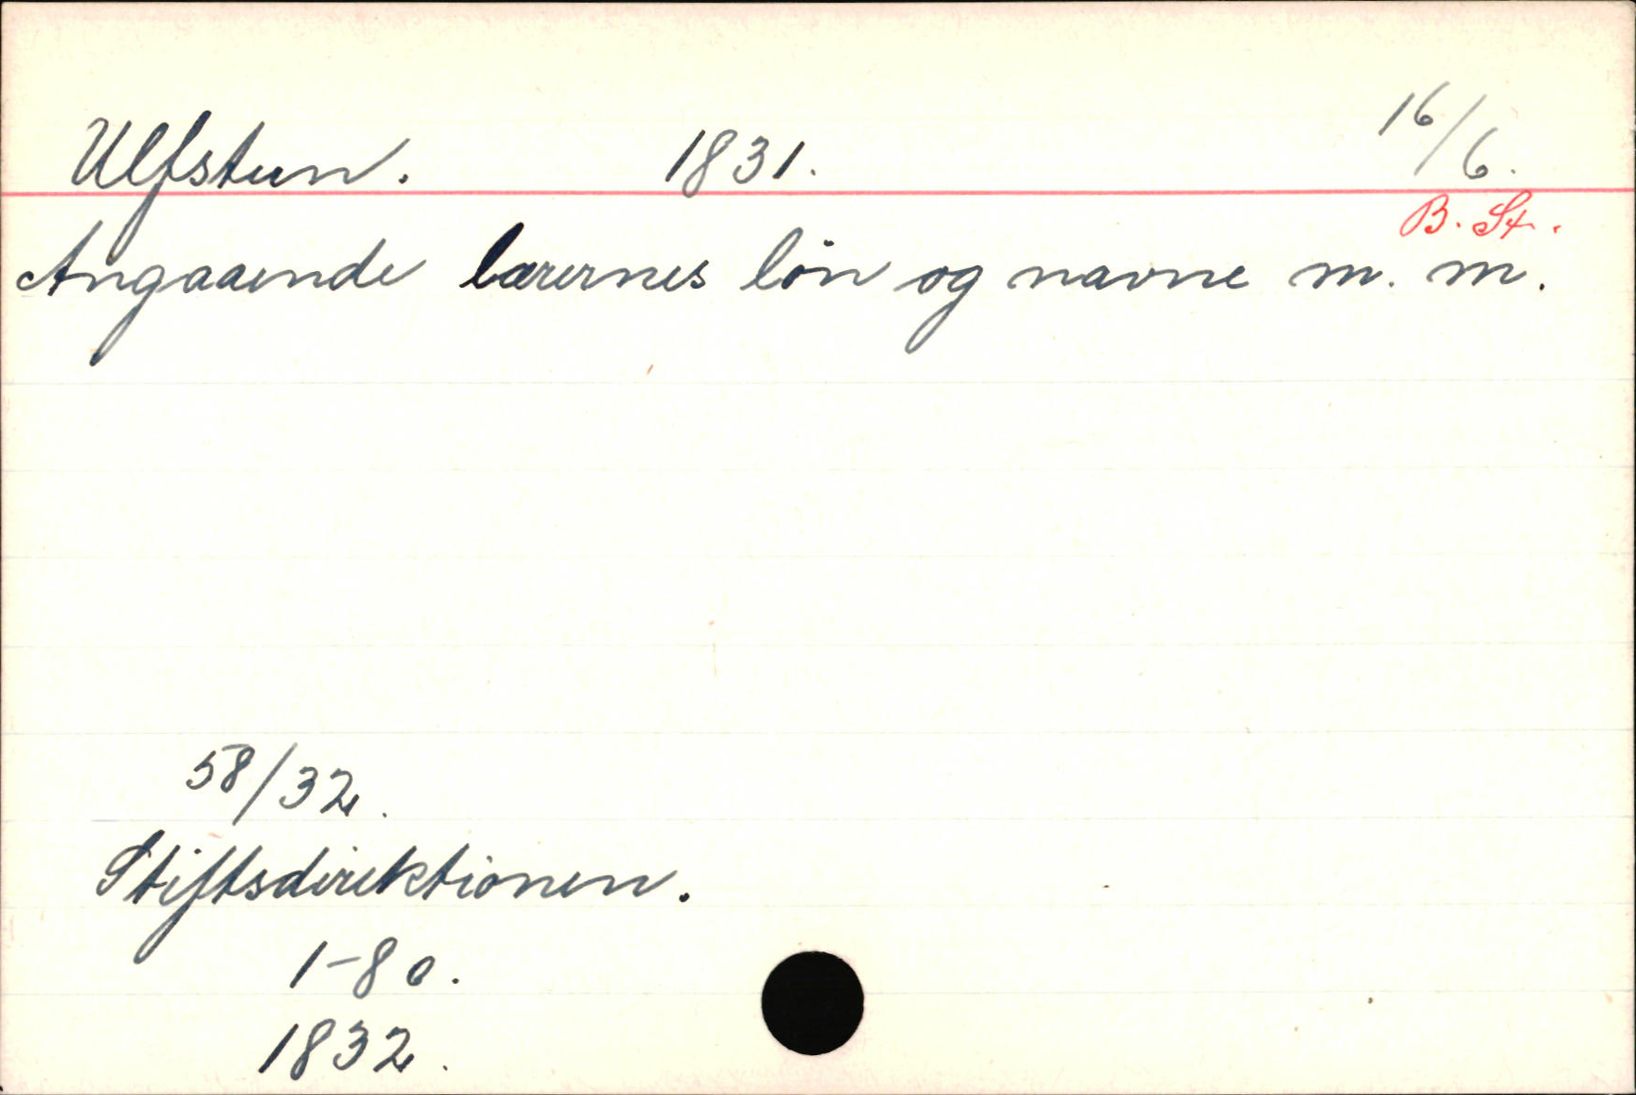 Ulfstun. 1831. 16/6.
B. St.
Angaaende lærernes lön og navne m. m.
58/32.
Stiftsdirektionen.
1-80.
1832.